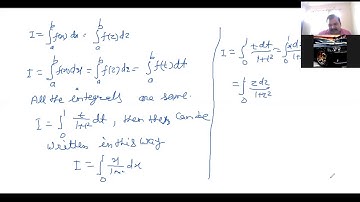 I = ∫ₐᵇ f(x) dx = ∫ₐᵇ f(z) dz
I = ∫ₐᵇ f(x) dx = ∫ₐᵇ f(z) dz = ∫ₐᵇ f(t) dt
All the integrals are same.
I = ∫₀¹ t/(1+t²) dt, then this can be
written in this way
I = ∫₀ x/(1+x²) dx
I = ∫₀¹ t dt/(1+t²) = ∫₀¹ x dx/(1+x²)
= ∫₀¹ z dz/(1+z²)